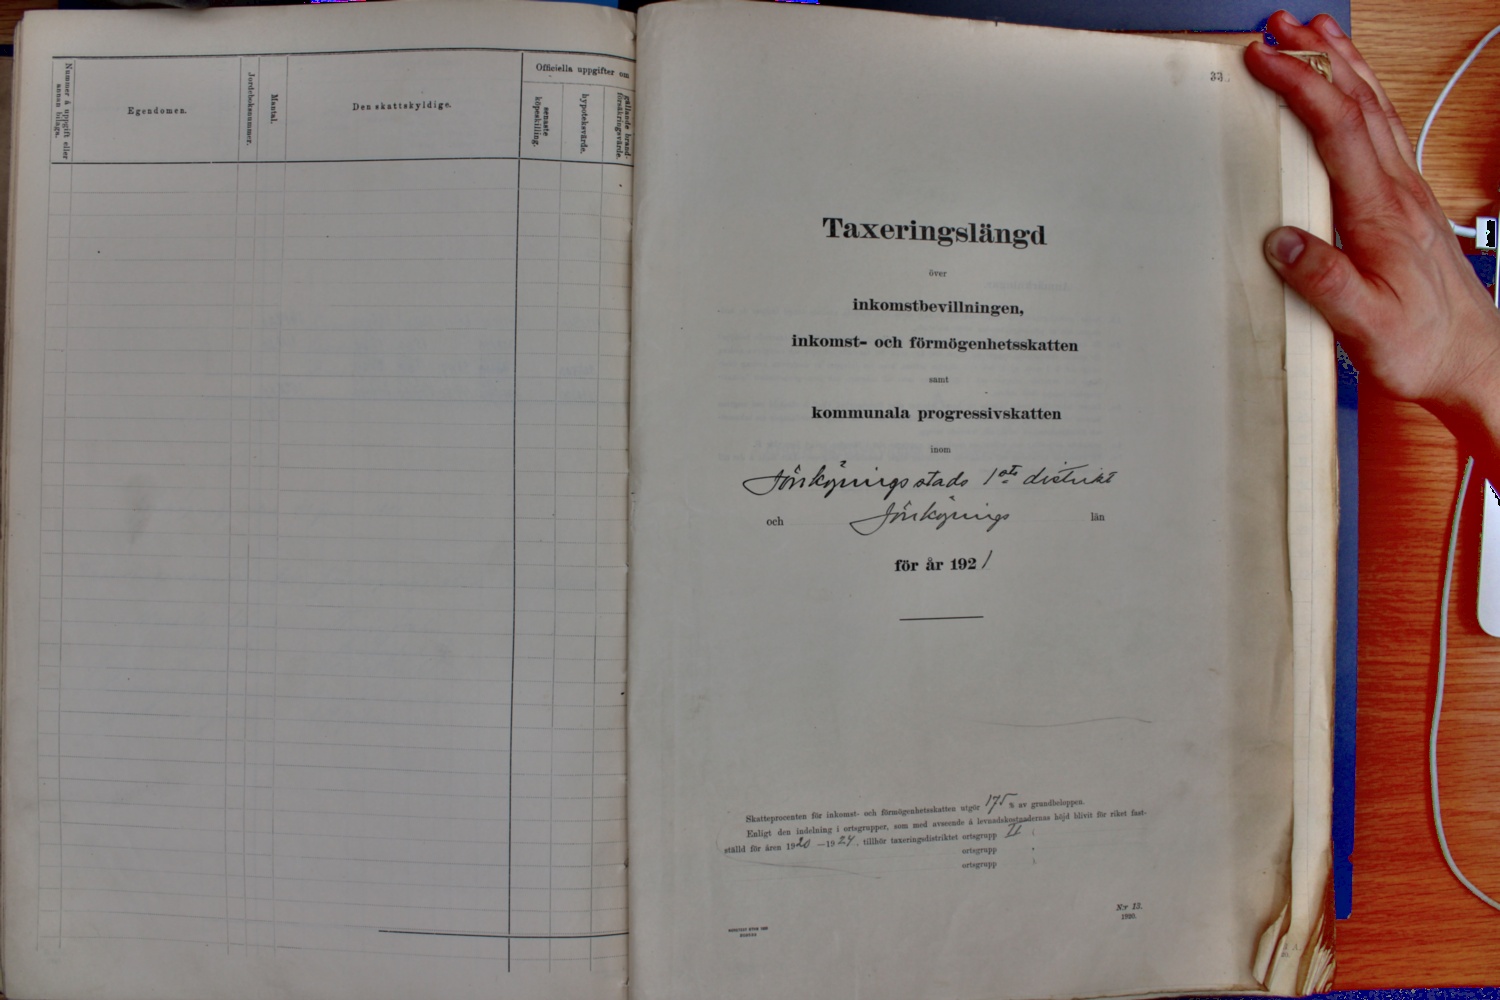 Nummer å uppgift eller annan bilaga.
Egendomen.
Jordeboksnummer.
Mantal.
Den skattskyldige.
Officiella uppgifter om
senaste köpeskilling.
hypoteksvärde.
gällande brandförsäkringsvärde.
33.
Taxeringslängd
över
inkomstbevillningen,
inkomst- och förmögenhetsskatten
samt
kommunala progressivskatten
inom
Jönköpings stads 1sta distrikt
och Jönköpings län
för år 1921
Skatteprocenten för inkomst- och förmögenhetsskatten utgör 175 % av grundbeloppen.
Enligt den indelning i ortsgrupper, som med avseende å levnadskostnadernas höjd blivit för riket fast-
ställd för åren 1920—1924, tillhör taxeringsdistriktet ortsgrupp II
ortsgrupp
ortsgrupp
N:r 13.
1920.